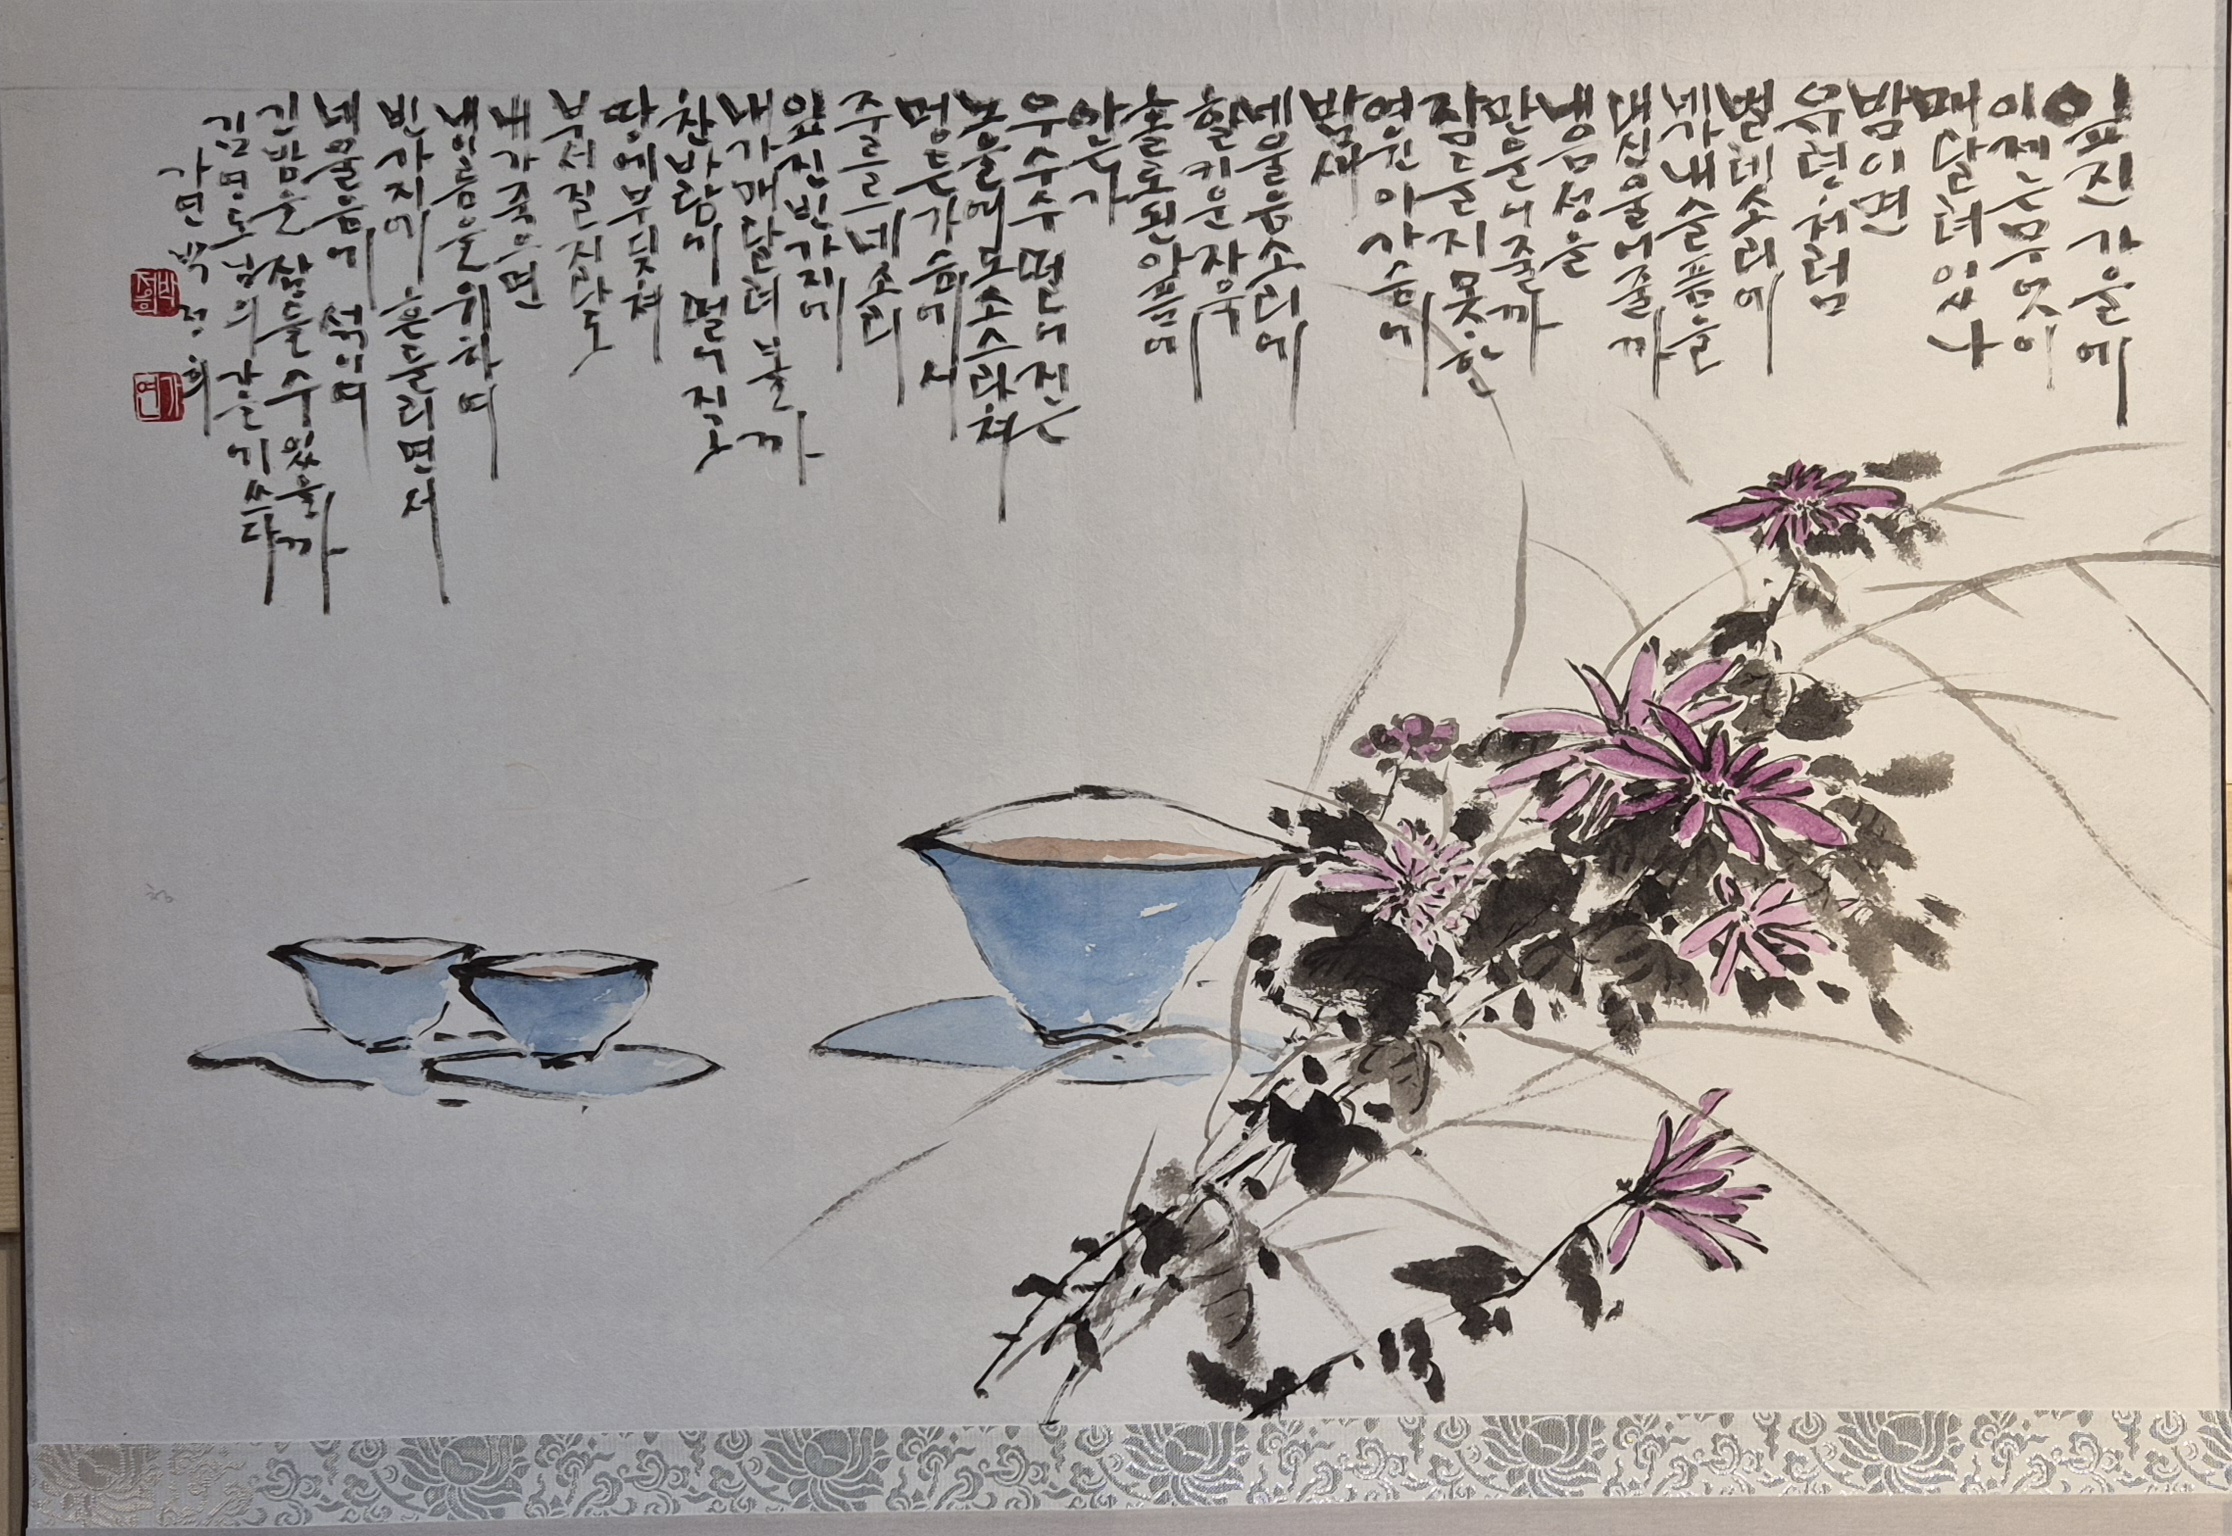 잎진 가을에
이제는 무엇이
매달려 있나
밤이면
유령처럼
벌레소리여
네가 내 슬픔을
대신 울어줄까
만들어줄까
잠들지 못한
여윈 이 가슴에
밤새
네 울음소리에
할키운 자욱
홀로된 아픔을
아는가
우수수 떨어진
노을에도 소스라쳐
멍든 가슴에서
주르르 네 소리
잎진 빈가지에
내가 매달려 볼까
찬바람에 떨어지고
땅에 부딪쳐
부서질지라도
내가 죽으면
내 이름을 위하며
빈가지에 흔들리면서
네 울음에 섞이며
긴밤을 잠들 수 있을까
김명도님의 가을에 쓰다
가연 박정희
박정희
가연